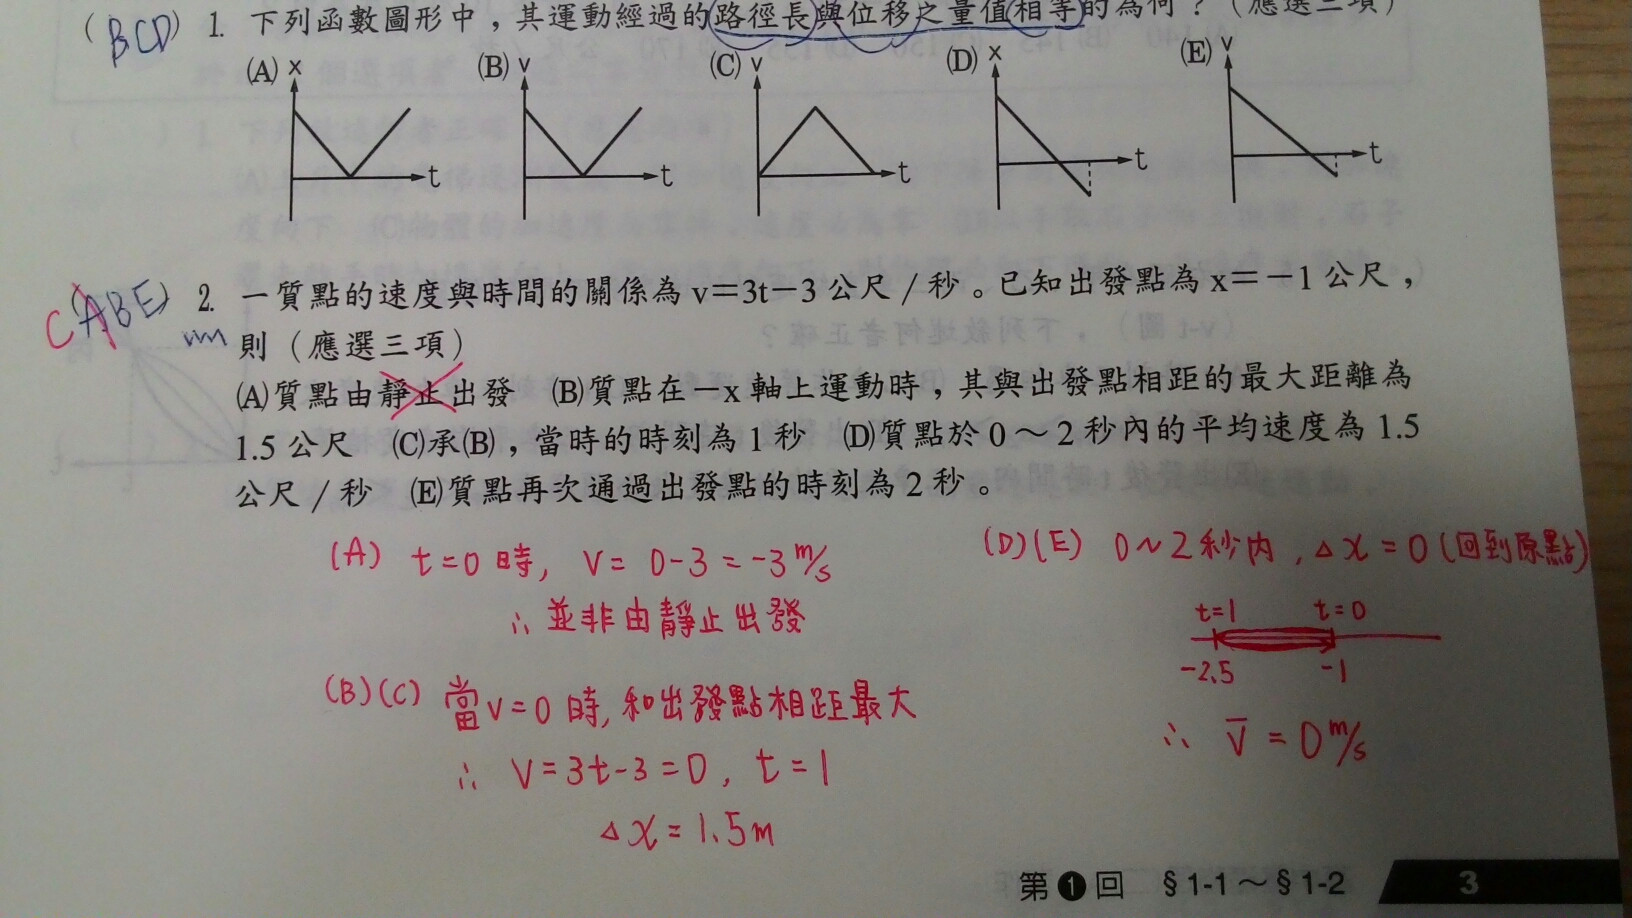 (BCD) 1. 下列函數圖形中，其運動經過的路徑長與位移之量值相等的為何？（應選三項）
(A) x t (B) v t (C) v t (D) x t (E) v t
C(ABE) 2. 一質點的速度與時間的關係為 v＝3t－3 公尺／秒。已知出發點為 x＝－1 公尺，
則（應選三項）
(A)質點由靜止出發 (B)質點在－x 軸上運動時，其與出發點相距的最大距離為
1.5 公尺 (C)承(B)，當時的時刻為 1 秒 (D)質點於 0～2 秒內的平均速度為 1.5
公尺／秒 (E)質點再次通過出發點的時刻為 2 秒。
(A) t=0 時, v= 0-3 = -3 m/s
∴ 並非由靜止出發
(B)(C) 當 v=0 時, 和出發點相距最大
∴ v=3t-3=0, t=1
△x=1.5m
(D)(E) 0~2 秒內, △x=0 (回到原點)
t=1 t=0
-2.5 -1
∴ v̄ = 0 m/s
第 1 回 §1-1～§1-2 3